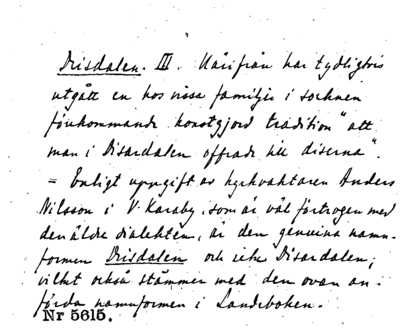 Drisdalen. III. Härifrån har tydligtvis
utgått en hos vissa familjer i socknen
förekommande konstgjord tradition "att
man i Disardalen offrade till diserna".
= Enligt uppgift av kyrkvaktaren Anders
Nilsson i V. Karaby, som är väl förtrogen med
den äldre dialekten, är den genuina namn-
formen Drisdalen och icke Disardalen;
vilket också stämmer med den ovan an-
förda namnformen i Landeboken.
Nr 5615.